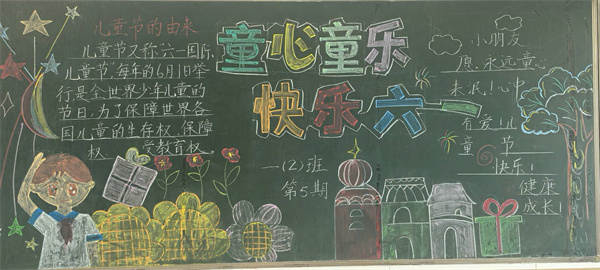 儿童节的由来
儿童节又称"六一国际
儿童节"每年的6月1日举
行是全世界少年儿童的
节日,为了保障世界各
国儿童的生存权、保障
权、受教育权。
童心童乐
快乐六一
一(2)班
第5期
小朋友
愿永远童心
未泯!心中
有爱!儿
童节
快乐!
健康
成长!